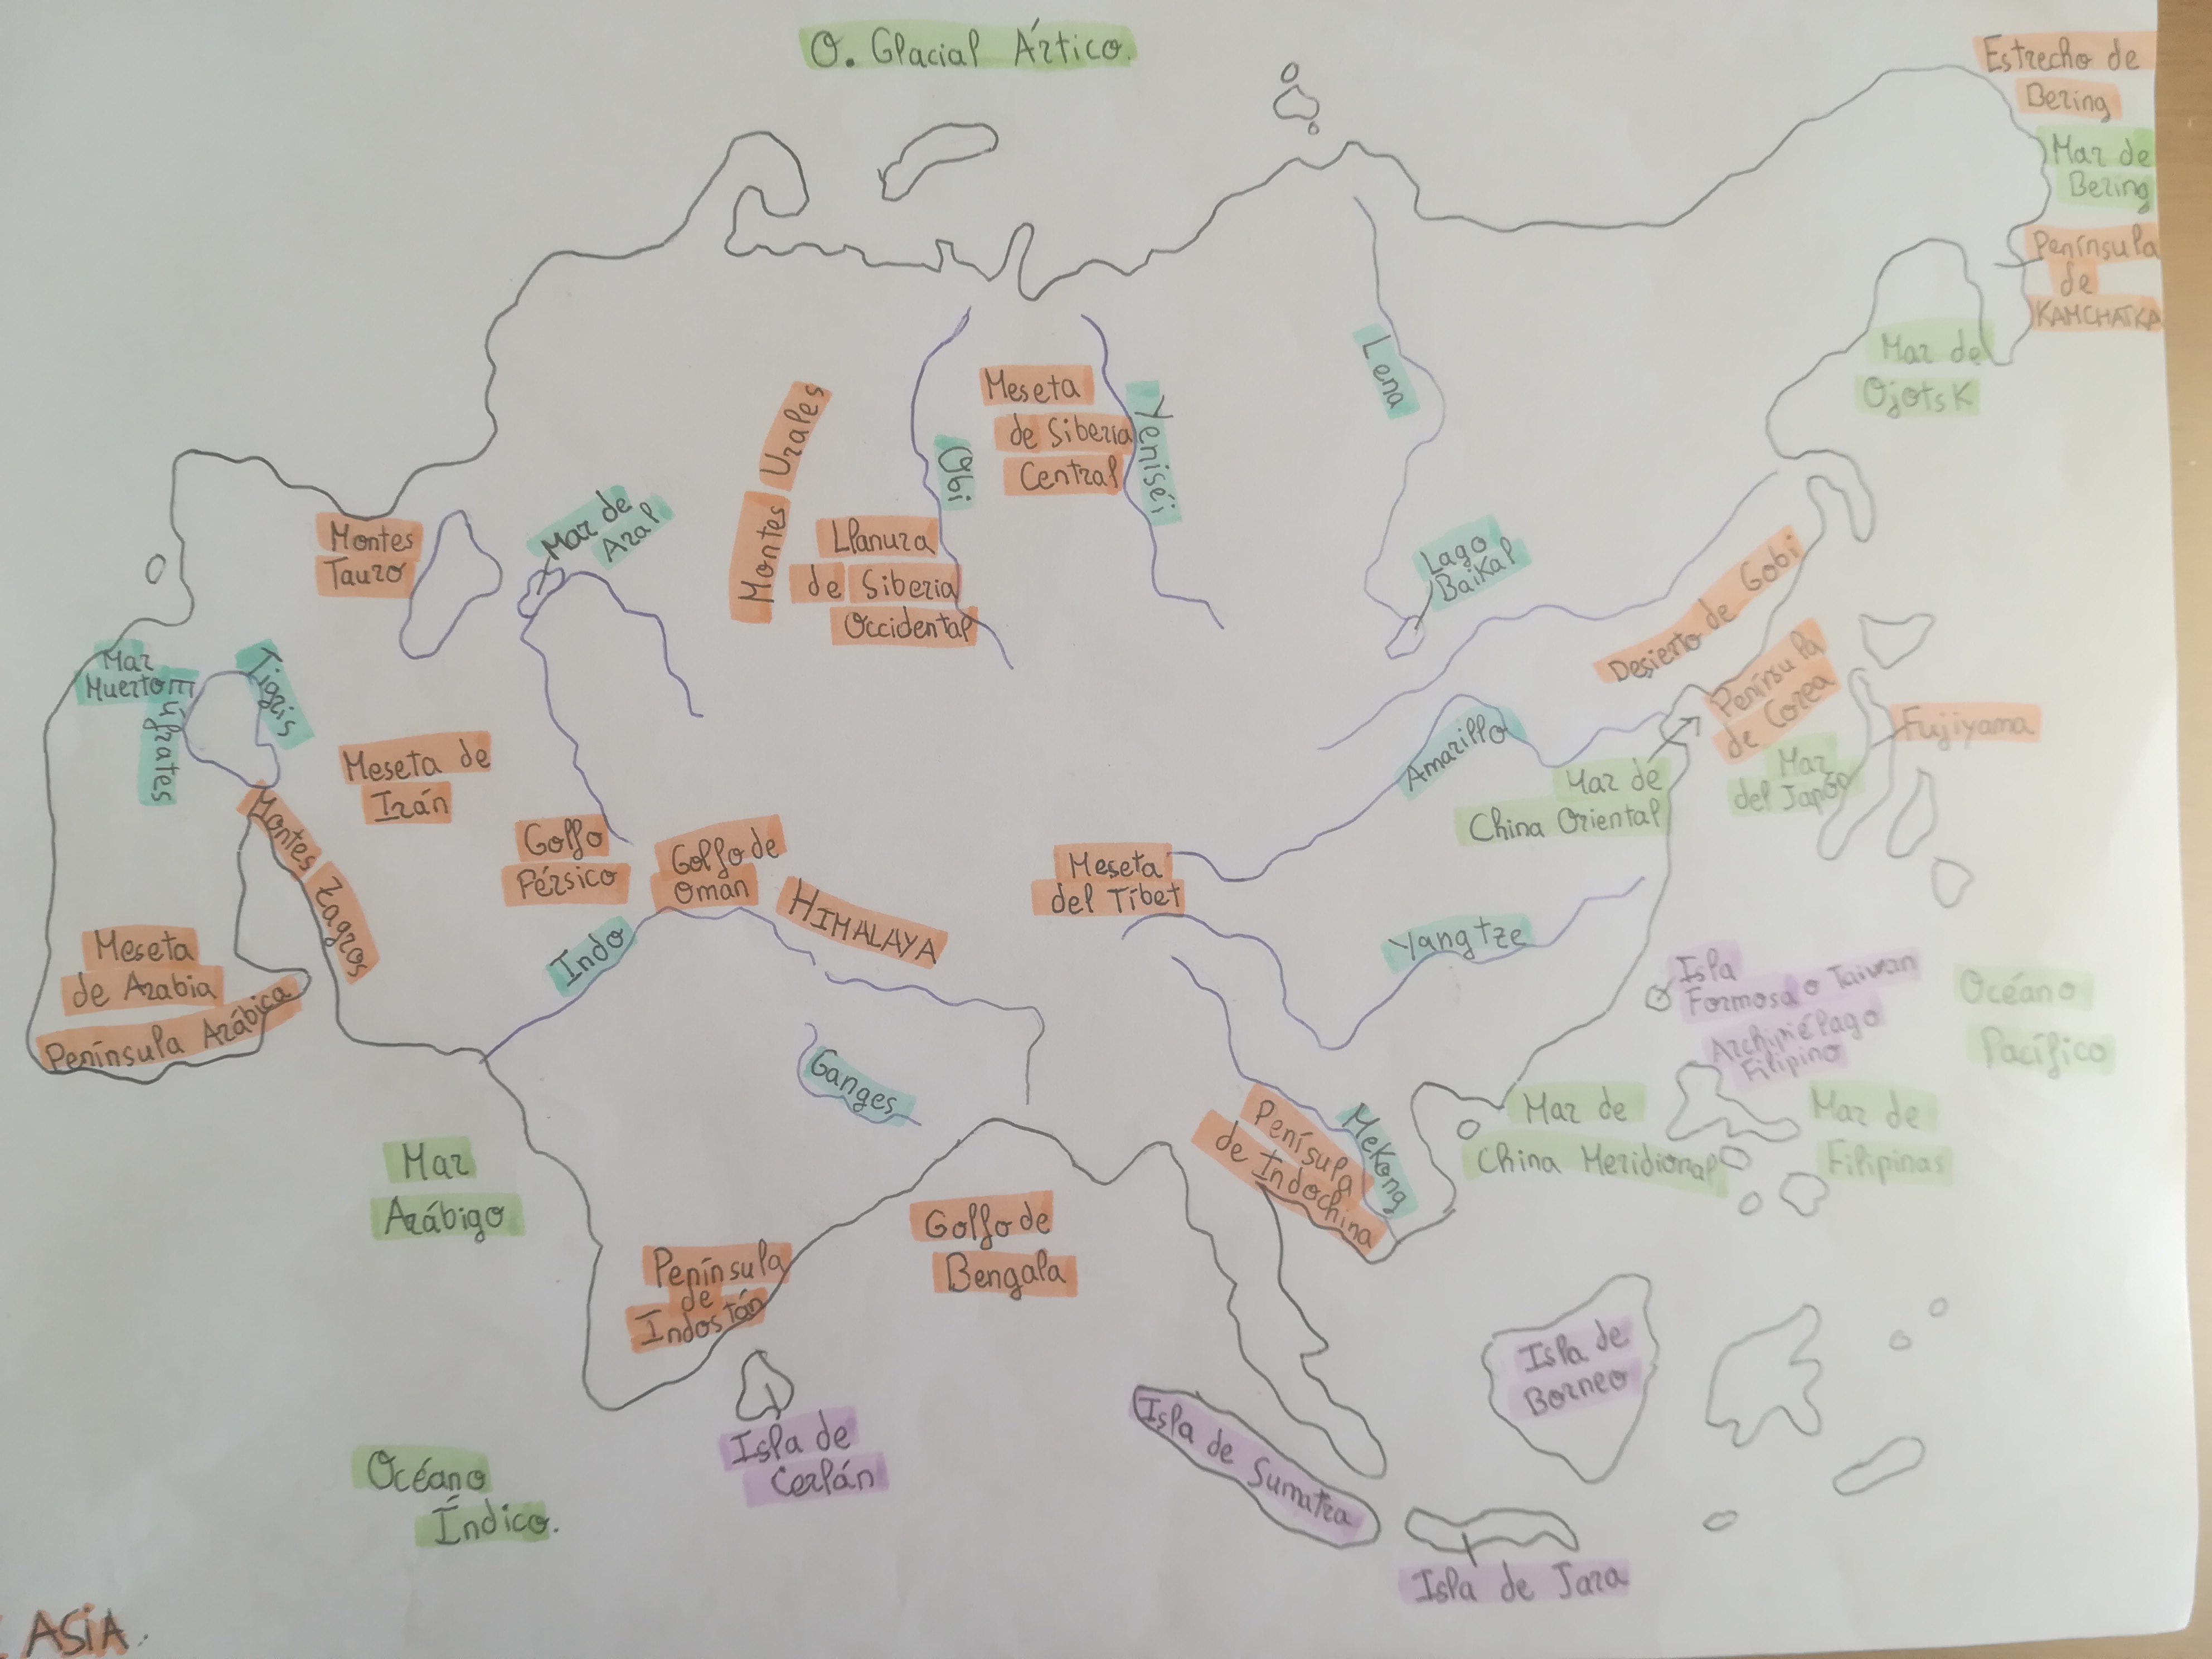 O. Glacial Ártico.
Estrecho de
Bering
Mar de
Bering
Península
de
KAMCHATKA
Mar de
Ojotsk
Lena
Meseta
de Siberia
Central
Yeniséi
Obi
Montes Urales
Llanura
de Siberia
Occidental
Mar de
Aral
Montes
Tauro
Lago
Baikal
Desierto de Gobi
Península
de Corea
Fujiyama
Mar
del Japón
Mar
Muerto
Tigris
Éufrates
Meseta de
Irán
Montes Zagros
Golfo
Pérsico
Golfo de
Oman
HIMALAYA
Meseta
del Tíbet
Amarillo
Mar de
China Oriental
Yangtze
Indo
Meseta
de Arabia
Península Arábica
Isla
Formosa o Taiwan
Archipiélago
Filipino
Océano
Pacífico
Ganges
Mekong
Penísula
de Indochina
Mar de
China Meridional
Mar de
Filipinas
Mar
Arábigo
Golfo de
Bengala
Península
de
Indostán
Isla de
Borneo
Isla de
Ceilán
Isla de Sumatra
Océano
Índico.
Isla de Java
ASIA.